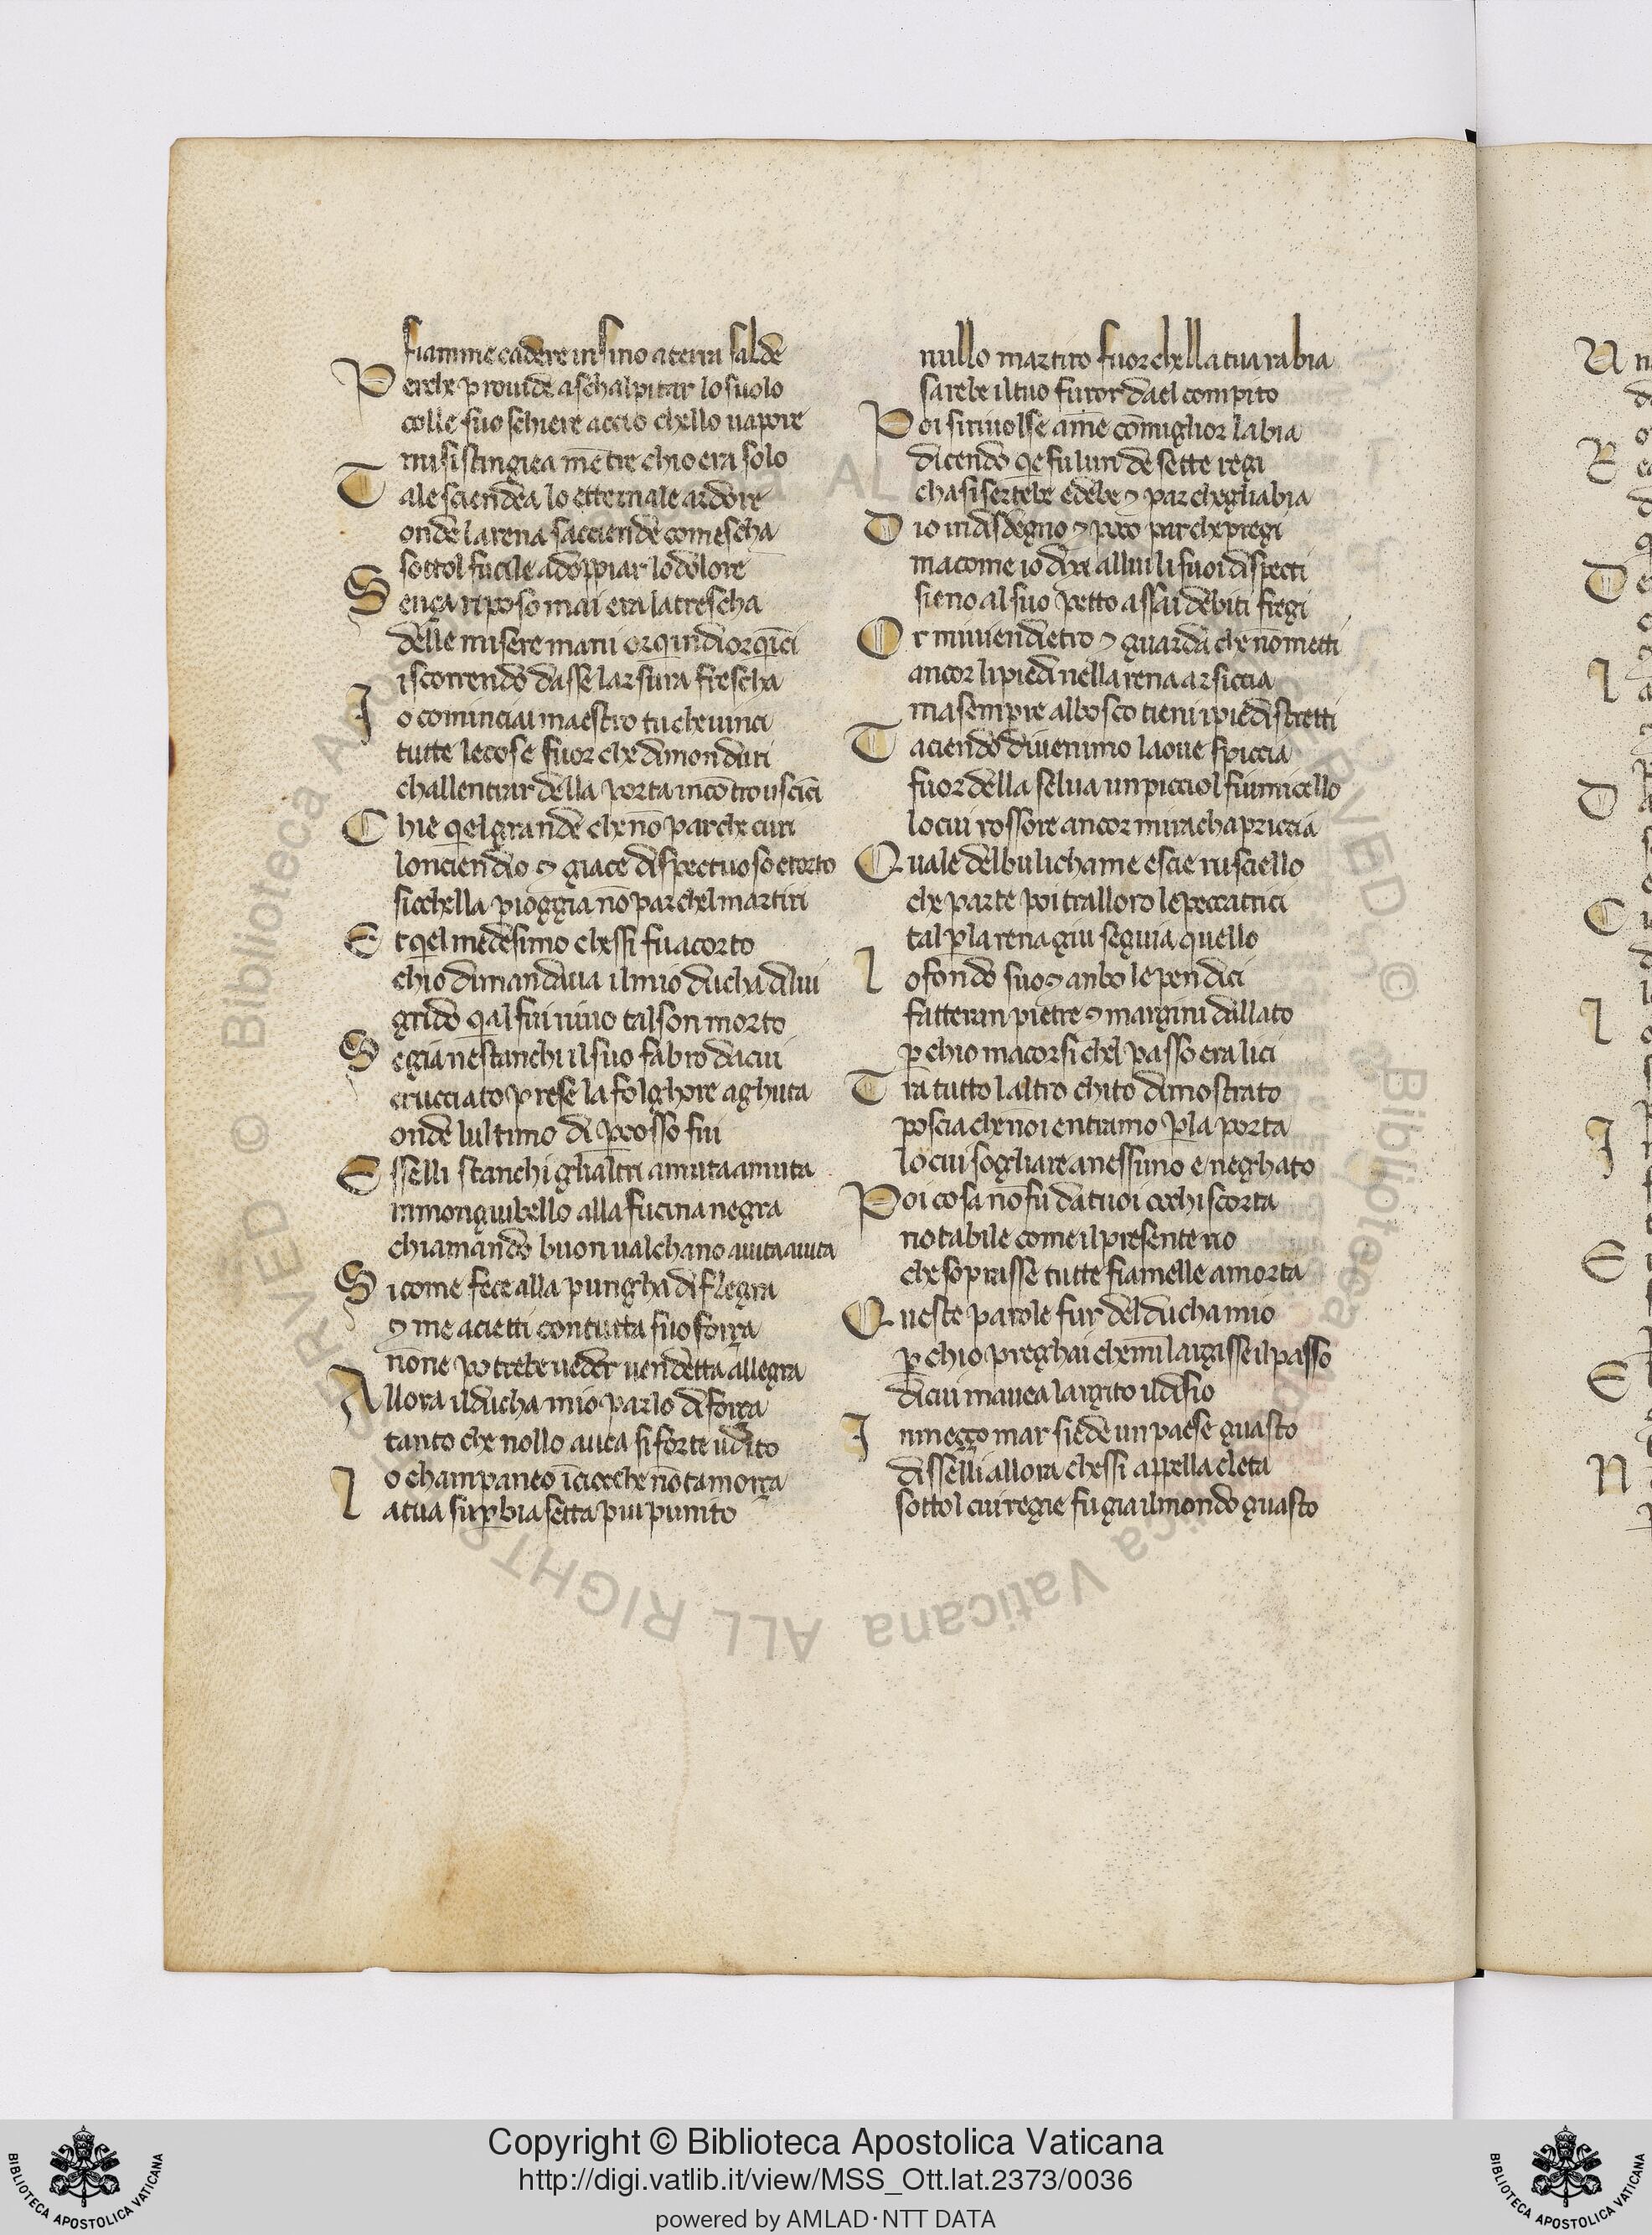 fiamme cadere infino a terra salde
Perche p rouide aschalpitar lo suolo
colle suo schiere accio chello uapore
misi stingiea mētre chio era solo
Tale sciendea lo etternale ardore
onde larena sacciende comescha
sottol fucile adoppiar lo dolore
Sença riposo mai era la trescha
delle misere mani or quindi or qīci
iscorrendo dasse larsura frescha
Io cominciai maestro tu che uinci
tutte le cose fuor che dimon duri
challentrar della porta incōtro uscīci
Chie q̄el grande che no par che curi
loncendio ⁊ giace dispectuoso e torto
sicchella pioggia nō par chel martiri
Et q̄el medesimo chessi fu acorto
chio dimandaua il mio ducha di lui
grido q̄al fui uiuo tal son morto
Se gia ne stanchi il suo fabro da cui
crucciato prese la folghore aghuta
onde lultimo di pcosso fui
Esselli stanchi glialtri a muta a muta
in mongiubello alla fucina negra
chiamando buon ualchano aiuta aiuta
Si come fece alla pungha di flegra
⁊ me acietti con tutta suo força
nōne potrebe ueder uendetta allegra
Allora il ducha mio parlo di força
tanto che nollo auea si forte udito
lo champaneo īcio che nō tamorça
la tua supbia setta piu punito
nullo martiro fuor chella tua rabia
sarebe il tuo furor dael compito
Poi si riuolse a me cō miglior labia
dicendo q̄e fu lun de sette regi
chasiser tebe edebe ⁊ par che gliabia
Dio in disdegno ⁊ poco par che pregi
ma come io dixi allui li suoi dispecti
sieno al suo petto assai debiti fregi
Or mi uien dietro ⁊ guarda che nō metti
ancor li piedi nella rena arsiccia
ma sempre al bosco tieni i piedi stretti
Taciendo diuenimo laoue spiccia
fuor della selua un picciol fiumicello
lo cui rossore ancor mi rachapriccia
Quale del bulichame escie rusciello
che parte poi tralloro le peccatrici
tal p la rena giu seguia quello
Lo fondo suo ⁊ anbo le pendici
fatteran pietre ⁊ margini dallato
p chio macorsi chel passo era lici
Tra tutto laltro chi to dimostrato
poscia che noi entramo p la porta
lo cui sogliare a nessuno e neghato
Poi cosa nō fu da tuoi ochi scorta
notabile come il presente rio
che soprasse tutte fiamelle amorta
Queste parole fur del ducha mio
p chio preghai che mi largisse il passo
di cui mauea largito il disio
In meçço mar siede un paese guasto
disselli allora chessi appella creta
sottol cui regie fu gia il mondo guasto
Copyright © Biblioteca Apostolica Vaticana
http://digi.vatlib.it/view/MSS_Ott.lat.2373/0036
powered by AMLAD·NTT DATA
BIBLIOTECA APOSTOLICA VATICANA
BIBLIOTECA APOSTOLICA VATICANA